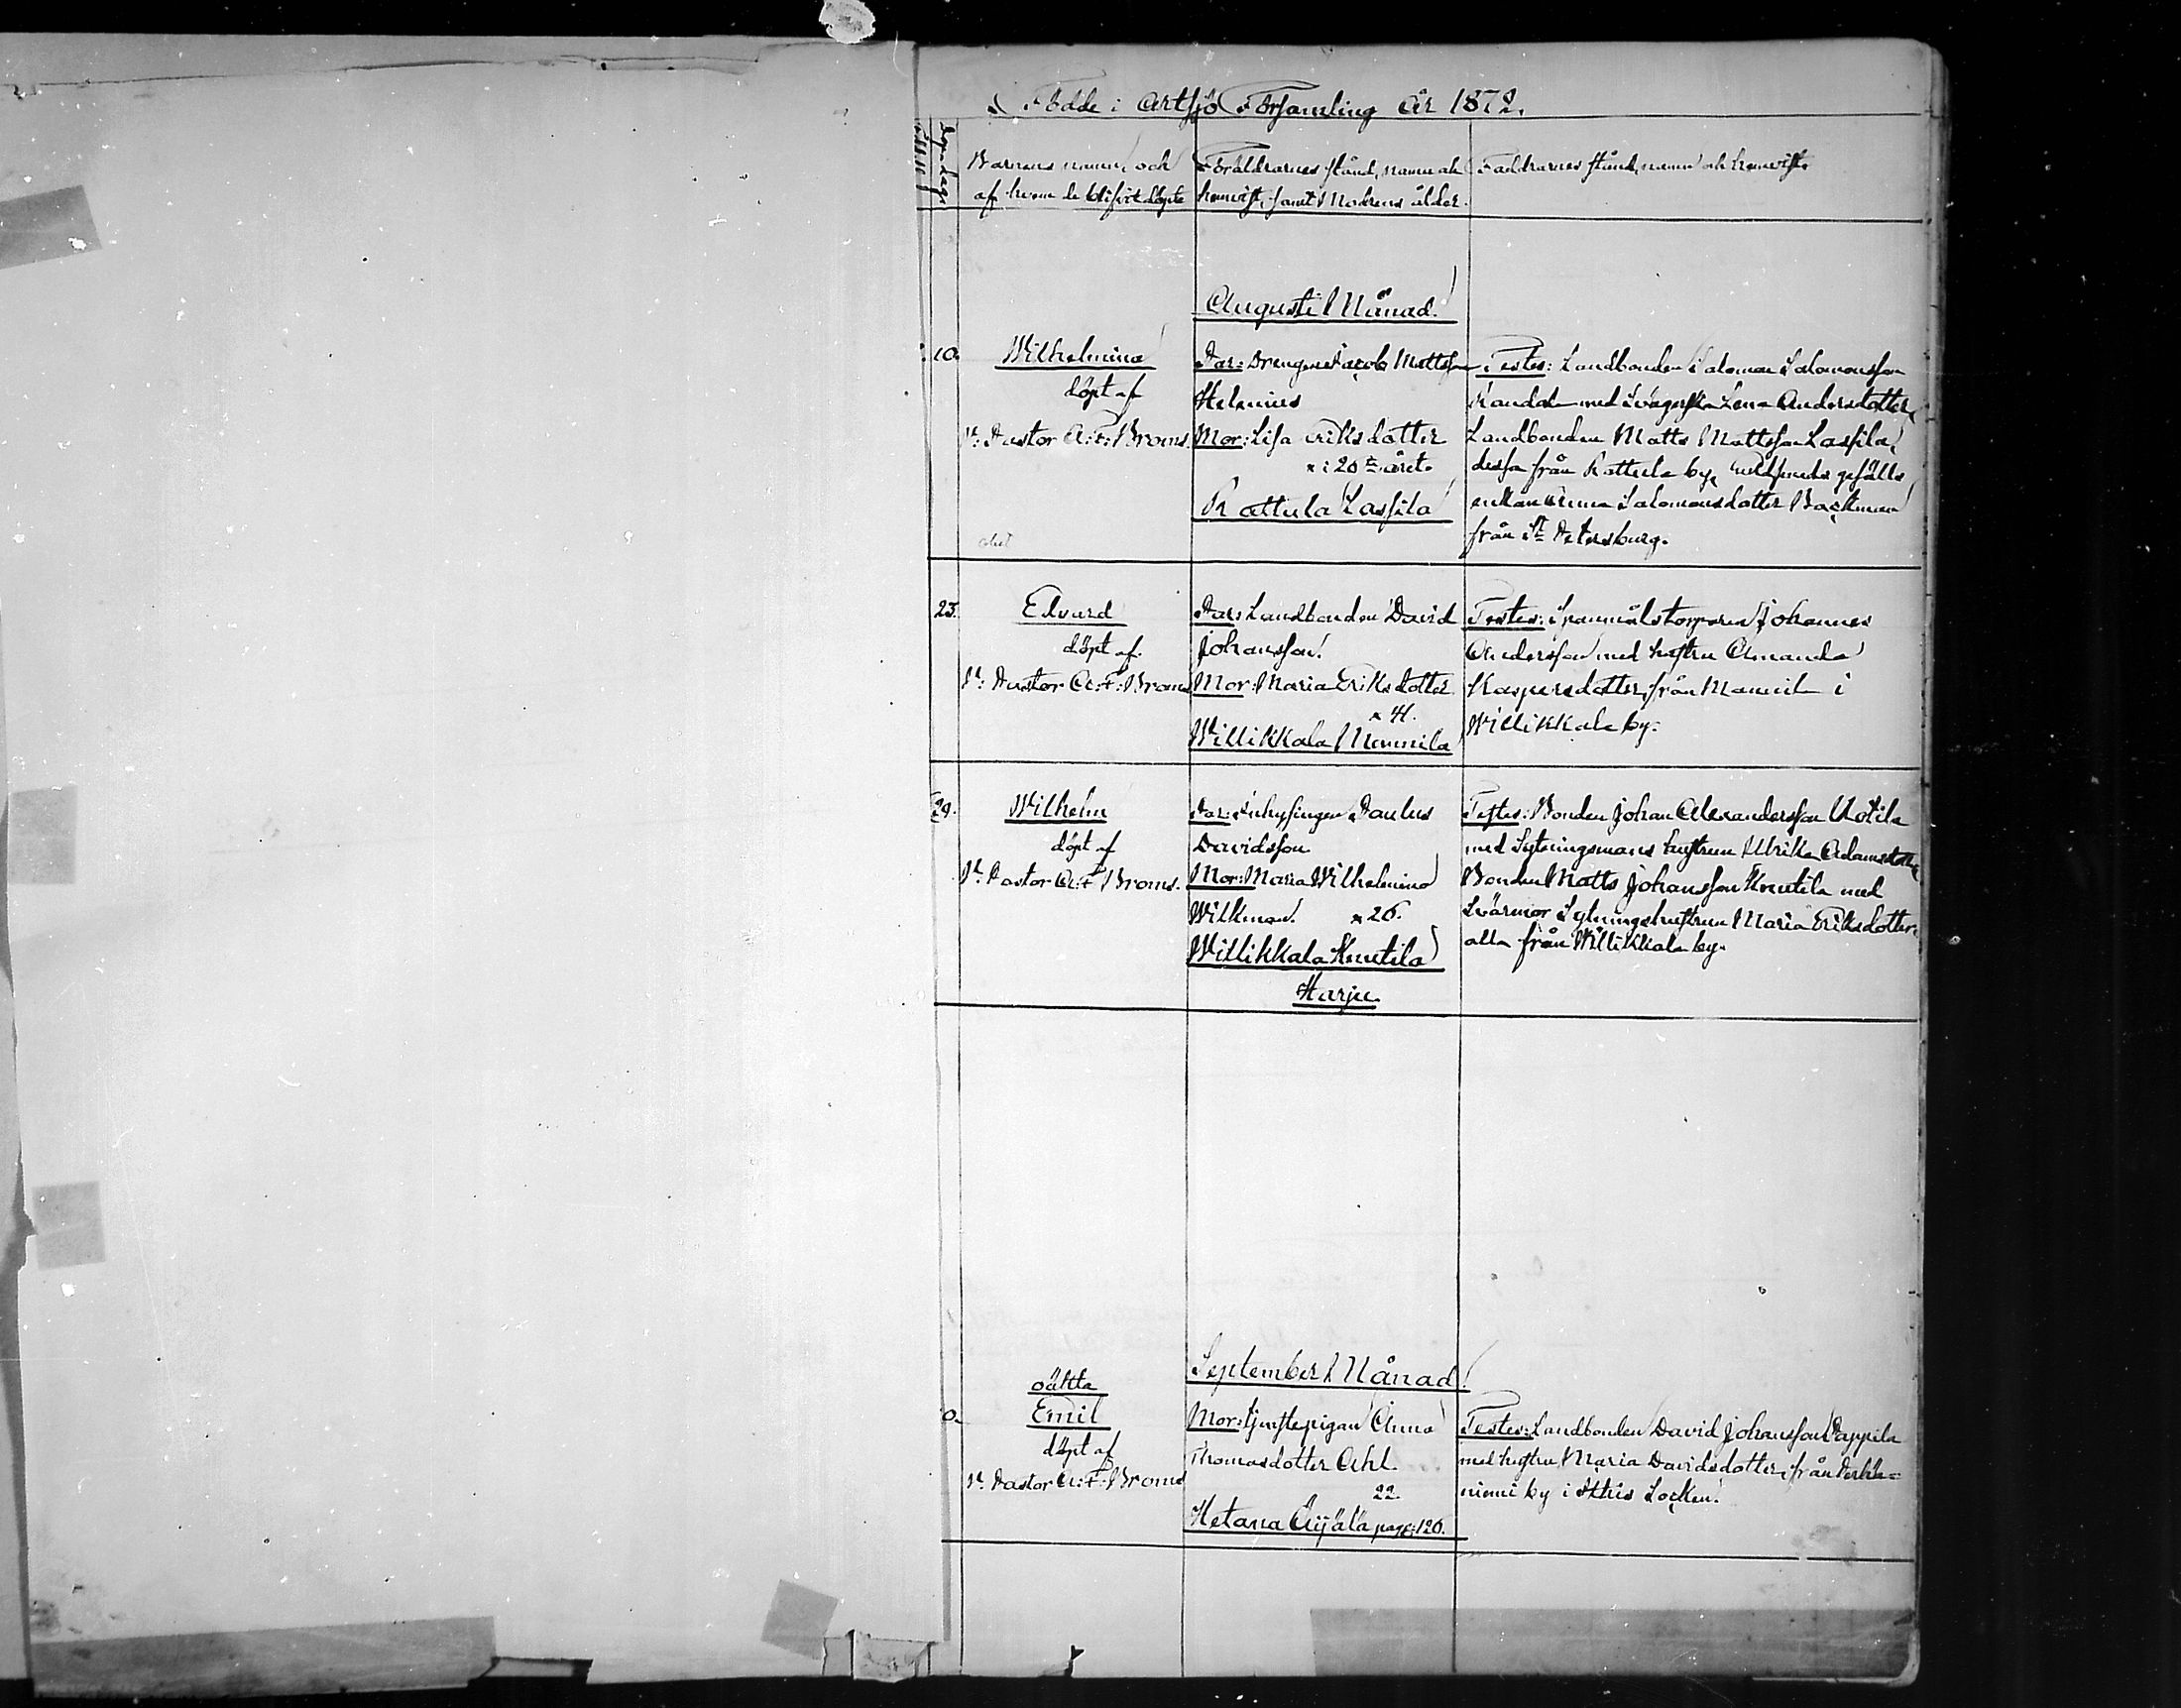 Födde i Artsjö Församling År 1872.
Dopsdagar
Barnens namn och
af hvem de blifvit döpte
Föräldrarnes stånd, namn och
hemvist, samt Modrens ålder.
Faddrarnes stånd, namn och hemvist.
Augusti Månad.
10.
Wilhelmina
döpt af
V: Pastor A: F: Broms.
Far: Drengen Jacob Mattsson
Helenius
Mor: Lisa Eriksdotter
x i 20de året.
Rattula Lassila
Testes: Landbonden Salomon Salomonsson
med Svägerskan Lena Andersdotter,
Landbonden Matts Mattsson Lassila,
dessa från Rattula by,
enkan Anna Salomonsdotter Backman
från St Petersburg.
23.
Edvard
döpt af
V: Pastor A: F: Broms
Far: Landbonden David
Johansson.
Mor: Maria Eriksdotter
x 41.
Willikkala Mannila
Testes: Spannmålstorparen Johannes
Andersson med hustru Amanda
Kaspersdotter, från Mannila i
Willikkala by.
29.
Wilhelm
döpt af
V: Pastor A: F Broms.
Far: Inhysingen Paulus
Davidsson
Mor: Maria Wilhelmina
Wilkman. x 26.
Willikkala Knutila
Harju
Testes: Bonden Johan Alexandersson Uotila
med Sytningsmans hustrun Ulrika Adamsdotter,
Bonden Matts Johansson Knutila med
Svärmor Sytningshustrun Maria Eriksdotter,
alla från Willikkala by.
September Månad.
oäkta
Emil
döpt af
V: Pastor A: F: Broms
Mor: tjenstepigan Anna
Thomasdotter Ahl.
22.
Hetana Äijälä pag: 126.
Testes: Landbonden David Johansson Pappila
med hustru Maria Davidsdotter, från Perhe=
niemi by i Ithis Socken.